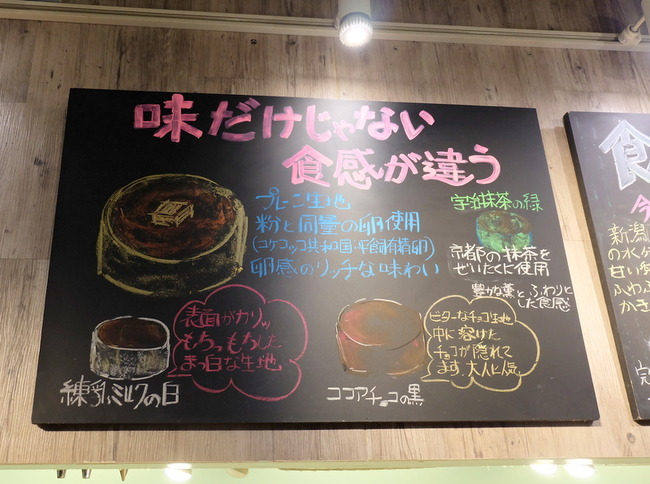 味だけじゃない
食感が違う
プレーン生地
粉と同量の卵使用
(コケコッコ共和国・平飼有精卵)
卵感のリッチな味わい
宇治抹茶の緑
京都の抹茶を
ぜいたくに使用
豊かな薫とふわりと
した食感
表面がカリッ
もちっもちした
まっ白な生地
練乳ミルクの白
ビターなチョコ生地
中に溶けた
チョコが隠れて
ます。大人に人気
ココアチョコの黒
食
新潟
の水
甘い
ふわふ
かき
完